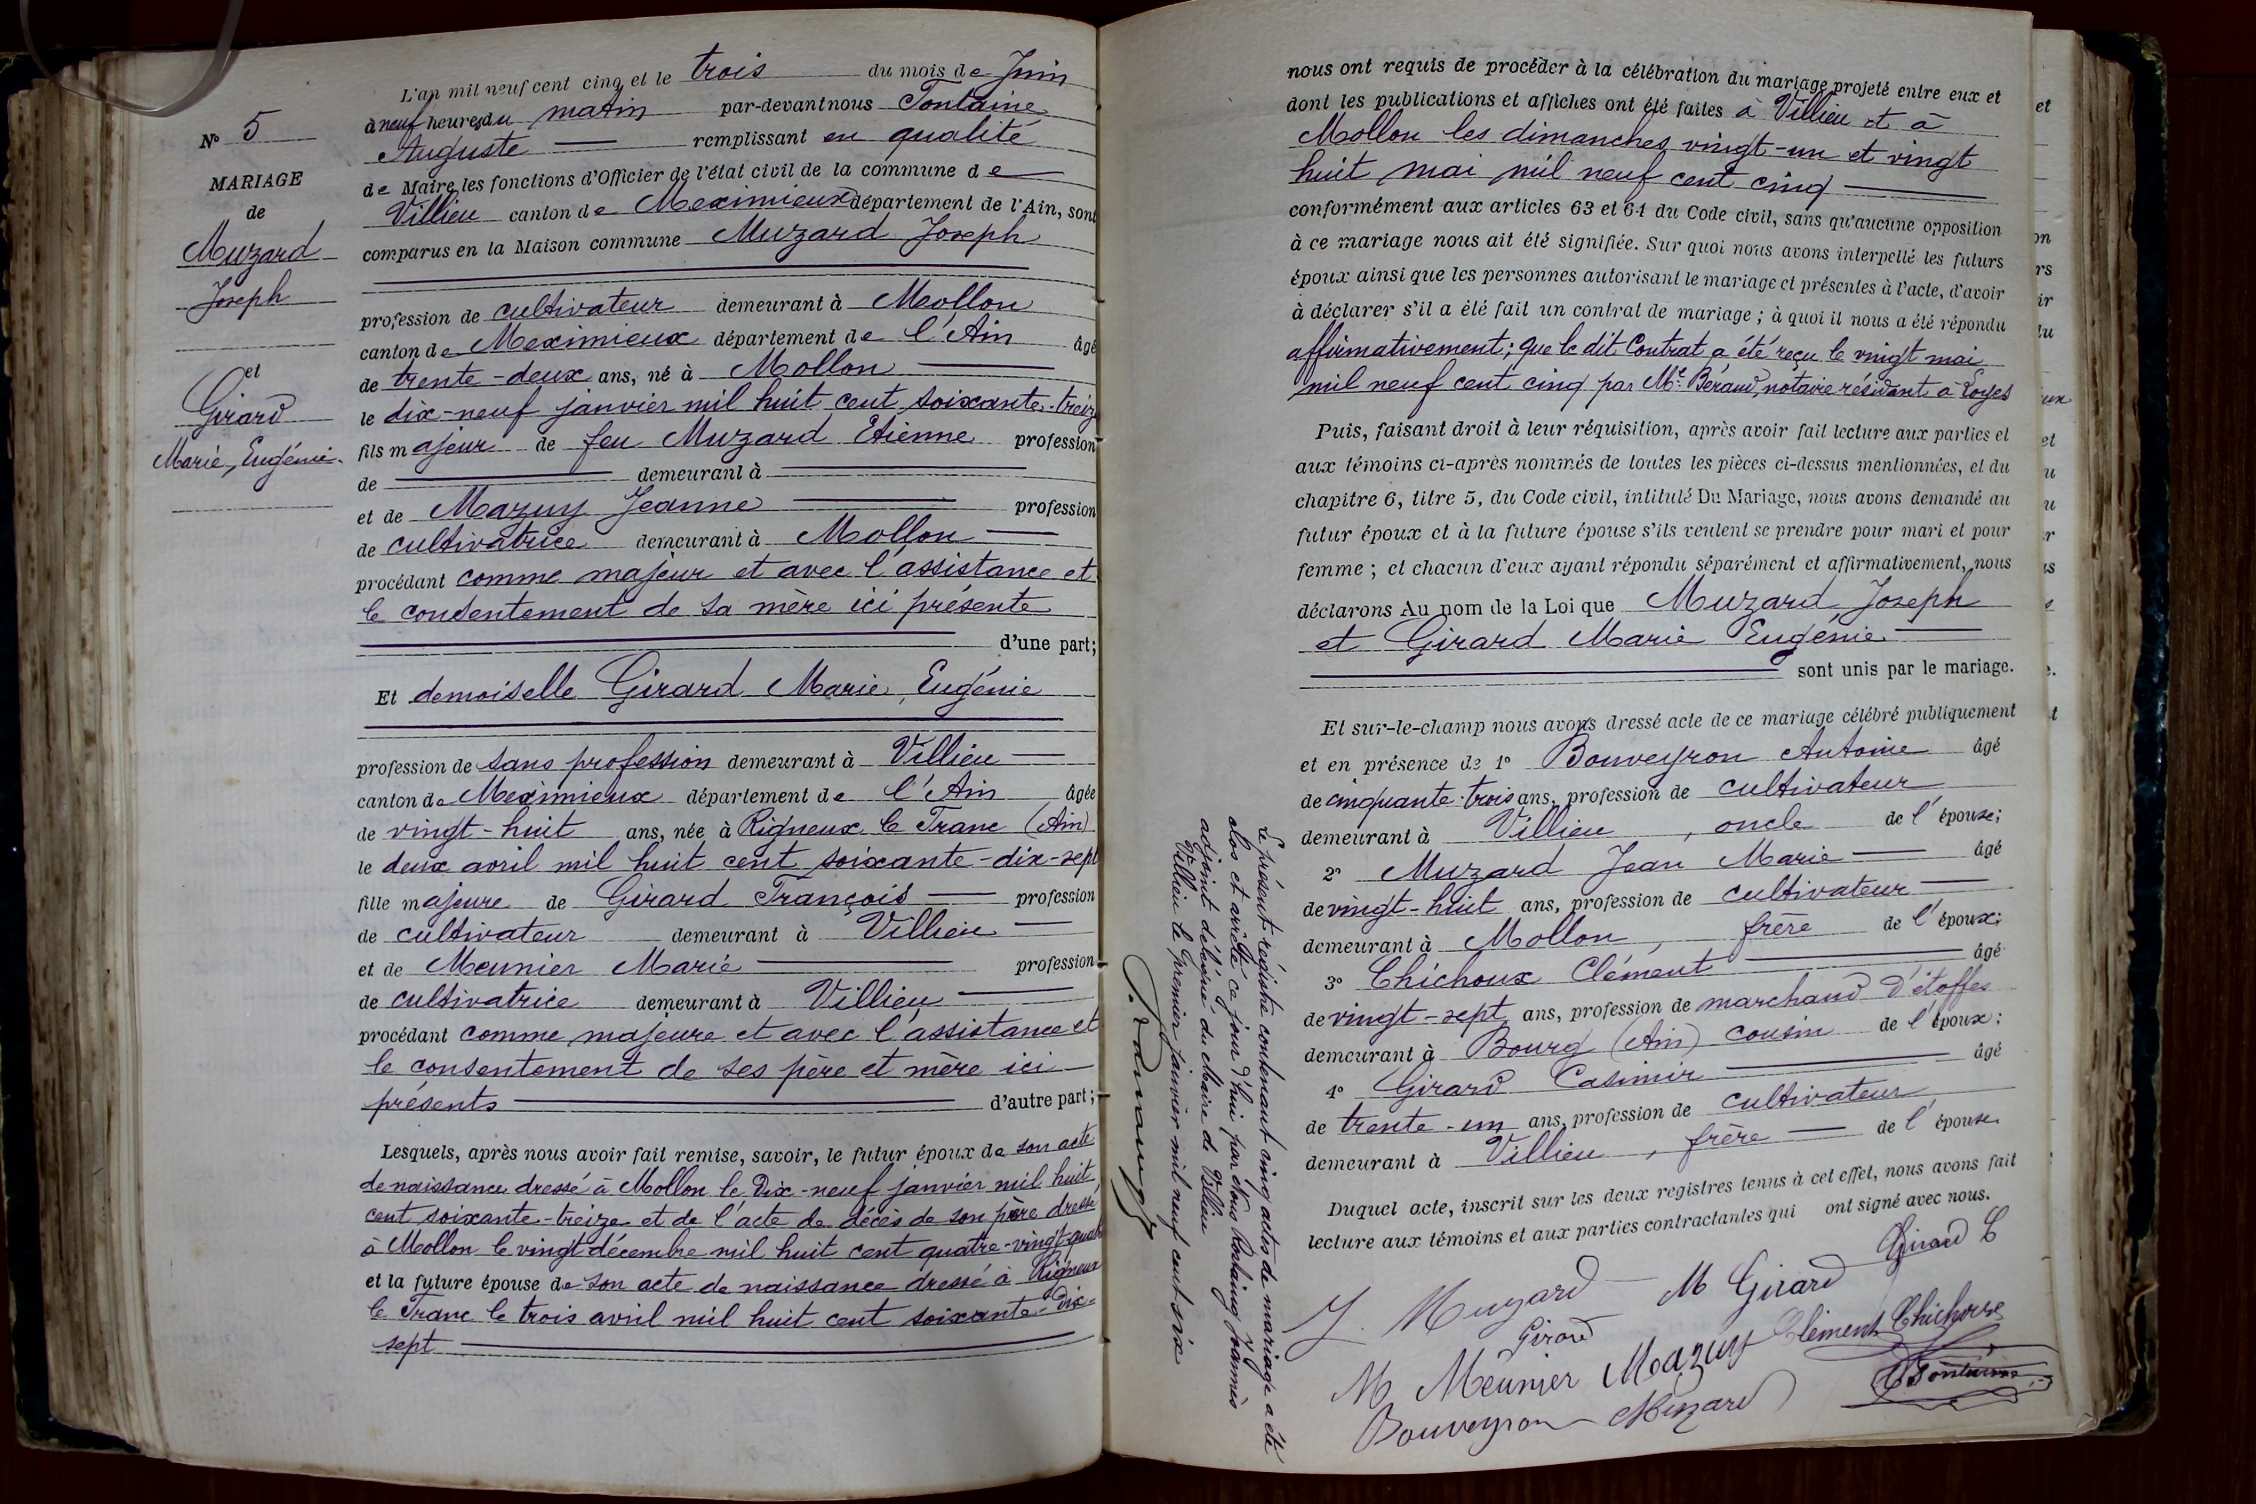 N° 5
MARIAGE
de
Muzard
Joseph
et
Girard
Marie, Eugénie
L'an mil neuf cent cinq et le trois du mois de Juin
à neuf heures du matin par-devant nous Fontaine
Auguste remplissant en qualité
de Maire les fonctions d'Officier de l'état civil de la commune de
Villieu canton de Meximieux département de l'Ain, sont
comparus en la Maison commune Muzard Joseph
profession de cultivateur demeurant à Mollon
canton de Meximieux département de l'Ain âgé
de trente-deux ans, né à Mollon
le dix-neuf janvier mil huit cent soixante-treize
fils majeur de feu Muzard Etienne profession
de demeurant à
et de Mazuy Jeanne profession
de cultivatrice demeurant à Mollon
procédant comme majeur et avec l'assistance et
le consentement de sa mère ici présente
d'une part;
Et demoiselle Girard Marie, Eugénie
profession de sans profession demeurant à Villieu
canton de Meximieux département de l'Ain âgée
de vingt-huit ans, née à Rigneux le Franc (Ain)
le deux avril mil huit cent soixante-dix-sept
fille majeure de Girard François profession
de cultivateur demeurant à Villieu
et de Meunier Marie profession
de cultivatrice demeurant à Villieu
procédant comme majeure et avec l'assistance et
le consentement de ses père et mère ici
présents d'autre part;
Lesquels, après nous avoir fait remise, savoir, le futur époux de son acte
de naissance dressé à Mollon le dix-neuf janvier mil huit
cent soixante-treize et de l'acte de décès de son père dressé
à Mollon le vingt décembre mil huit cent quatre-vingt-quatre
et la future épouse de son acte de naissance dressé à Rigneux
le Franc le trois avril mil huit cent soixante-dix-
sept
nous ont requis de procéder à la célébration du mariage projeté entre eux et
dont les publications et affiches ont été faites à Villieu et à
Mollon les dimanches vingt-un et vingt
huit mai mil neuf cent cinq
conformément aux articles 63 et 64 du Code civil, sans qu'aucune opposition
à ce mariage nous ait été signifiée. Sur quoi nous avons interpellé les futurs
époux ainsi que les personnes autorisant le mariage et présentes à l'acte, d'avoir
à déclarer s'il a été fait un contrat de mariage ; à quoi il nous a été répondu
affirmativement; que le dit Contrat a été reçu le vingt mai
mil neuf cent cinq par Me Béraud, notaire résidant à Loyes
Puis, faisant droit à leur réquisition, après avoir fait lecture aux parties et
aux témoins ci-après nommés de toutes les pièces ci-dessus mentionnées, et du
chapitre 6, titre 5, du Code civil, intitulé Du Mariage, nous avons demandé au
futur époux et à la future épouse s'ils veulent se prendre pour mari et pour
femme ; et chacun d'eux ayant répondu séparément et affirmativement, nous
déclarons Au nom de la Loi que Muzard Joseph
et Girard Marie Eugénie
sont unis par le mariage.
Et sur-le-champ nous avons dressé acte de ce mariage célébré publiquement
et en présence de 1° Bouveyron Antoine âgé
de cinquante-trois ans, profession de cultivateur
demeurant à Villieu, oncle de l'épouse;
2° Muzard Jean Marie âgé
de vingt-huit ans, profession de cultivateur
demeurant à Mollon, frère de l'époux;
3° Chichoux Clément âgé
de vingt-sept ans, profession de marchand d'étoffes
demeurant à Bourg (Ain) cousin de l'époux;
4° Girard Casimir âgé
de trente-un ans, profession de cultivateur
demeurant à Villieu, frère de l'épouse.
Duquel acte, inscrit sur les deux registres tenus à cet effet, nous avons fait
lecture aux témoins et aux parties contractantes qui ont signé avec nous.
J. Muzard M Girard Girard C
Girard
M Meunier Mazuy Clément Chichoux
Bouveyron Muzard
A Fontaine
Le présent registre contenant cinq actes de mariage a été
clos et arrêté ce jour d'hui par Nous Rostaing Joannès
adjoint délégué du Maire de Villieu
Villieu le premier janvier mil neuf cent six